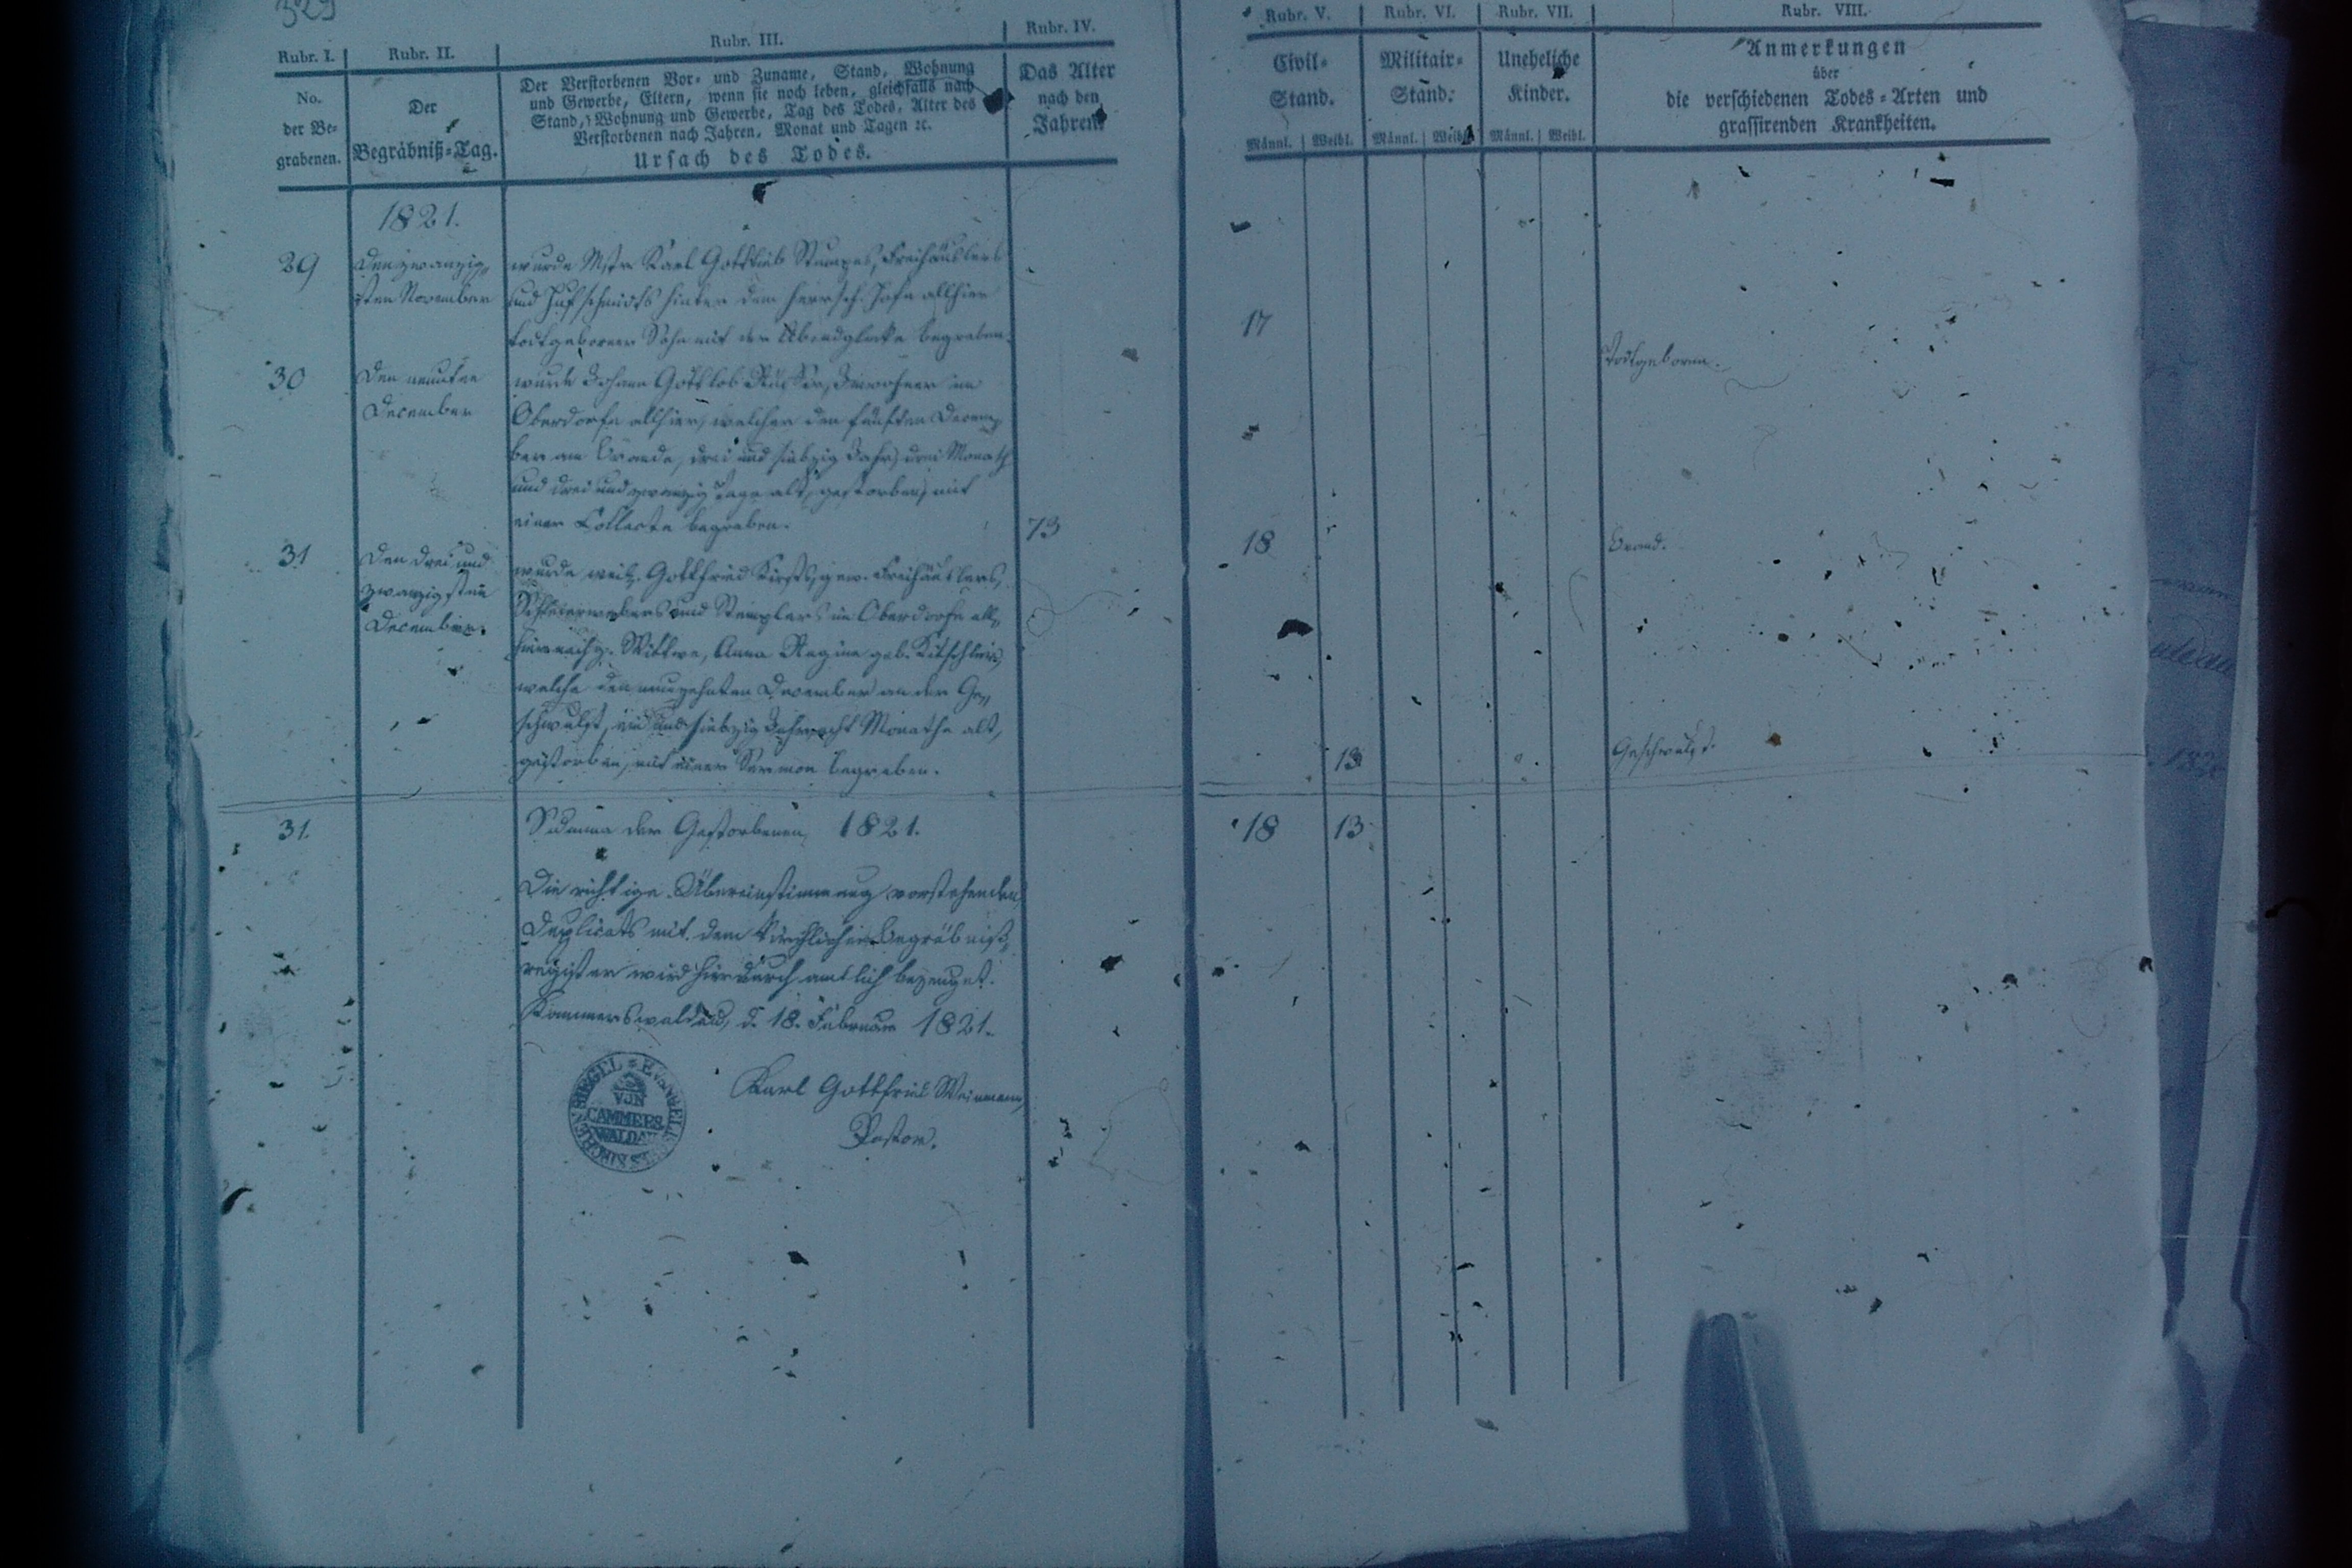 329
Rubr. I.
Rubr. II.
Rubr. III.
Rubr. IV.
No.
der Be=
grabenen.
Der
Begräbniß=Tag.
Der Verstorbenen Vor= und Zuname, Stand, Wohnung
und Gewerbe, Eltern, wenn sie noch leben, gleichfalls nach
Stand, Wohnung und Gewerbe, Tag des Todes, Alter des
Verstorbenen nach Jahren, Monat und Tagen ꝛc.
Ursach des Todes.
Das Alter
nach den
Jahren.
1821.
29
Den zwanzig„
sten November
wurde Mstr. Karl Gottlieb Freihäuslers
und Hufschmidts hinter dem herrsch. Hofe allhier
todtgeborner Sohn mit der Abendglocke begraben.
30
Den neunten
December
wurde Johann Gottlob Inwohner im
Oberdorfe allhier, welcher den fünften Decem„
ber am Brande, drei und siebzig Jahr, drei Monath
und drei und zwanzig Tage alt, gestorben, mit
einer Collecte begraben.
73
31
Den drei und
zwanzigsten
December.
wurde weil. Gottfried gew. Freihäuslers,
Schleierwebers und Stemplers im Oberdorfe all„
hier Wittwe, Anna Regina geb.
welche den neunzehnten December an der Ge„
schwulst, ein und siebzig Jahr acht Monathe alt,
gestorben, mit einer Sermon begraben.
31.
Summa der Gestorbenen, 1821.
Die richtige Übereinstimmung vorstehenden
Duplicats mit dem kirchlichen Begräbniß„
register wird hierdurch amtlich bezeuget.
Kammerswaldau, d. 18. Februar 1821.
Karl Gottfried Weinmann,
Pastor.
SIEGEL EVANGEL KIRCHEN
VON
CAMMERS
WALDAU
Rubr. V.
Rubr. VI.
Rubr. VII.
Rubr. VIII.
Civil=
Stand.
Militair=
Stand.
Uneheliche
Kinder.
Anmerkungen
über
die verschiedenen Todes=Arten und
grassirenden Krankheiten.
Männl.
Weibl.
Männl.
Weibl.
Männl.
Weibl.
17
Todtgeboren.
18
Brand.
13
Geschwulst.
18
13